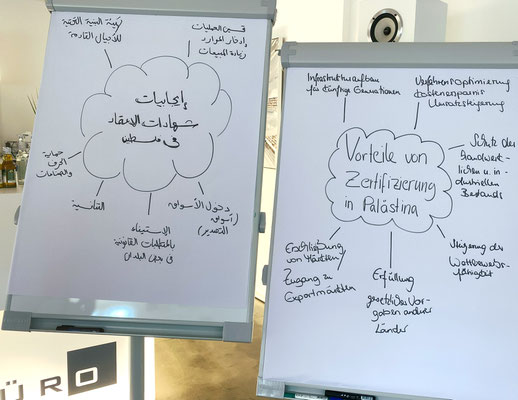 تهيئة البنية التحتية
للأجيال القادمة
تحسين العمليات
إدخار الموارد
زيادة المبيعات
إيجابيات
شهادات الاعتماد
في فلسطين
حماية
الحرف
والصناعات
التنافسية
الاستيفاء
بالمتطلبات القانونية
في بعض البلدان
دخول الأسواق
(أسواق
التصدير)
Infrastrukturaufbau
für künftige Generationen
Verfahrensoptimierung
Kostenersparnis
Umsatzsteigerung
Vorteile von
Zertifizierung
in Palästina
Schutz des
handwerk-
lichen u. in-
dustriellen
Bestands
Steigerung der
Wettbewerbs-
fähigkeit
Erschließung
von Märkten
Zugang zu
Exportmärkten
Erfüllung
gesetzlicher Vor-
gaben anderer
Länder
ÜRO